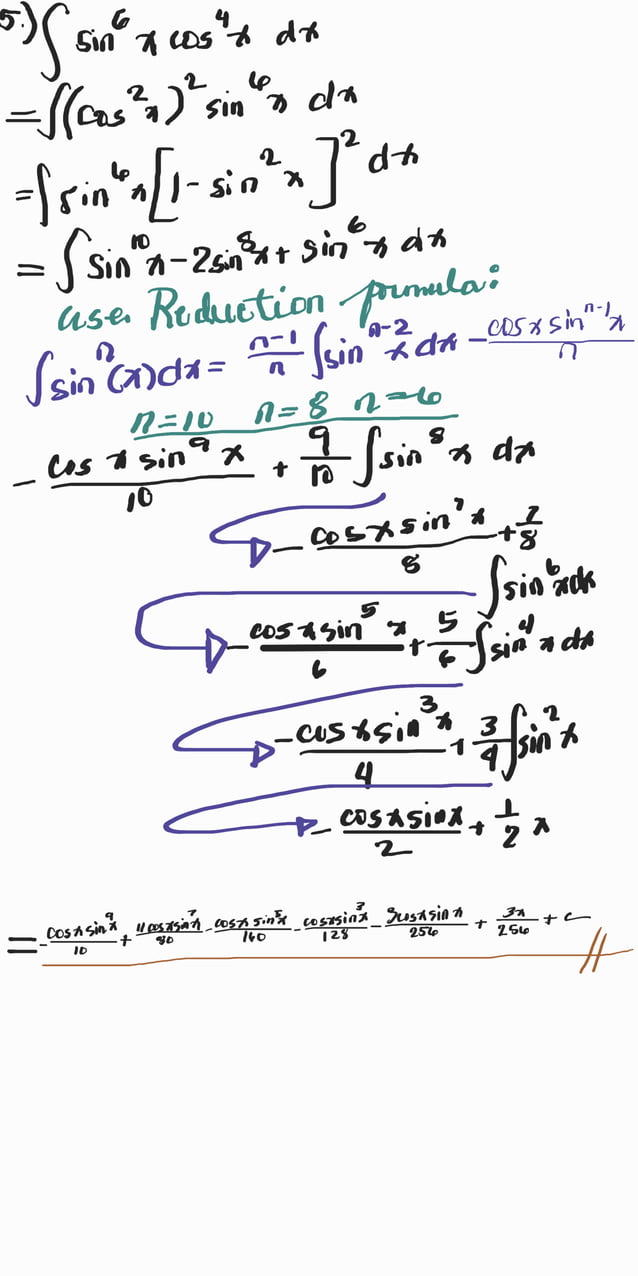 5.) ∫ sin⁶ x cos⁴ x dx
= ∫ (cos² x)² sin⁶ x dx
= ∫ sin⁶ x [1 - sin² x]² dx
= ∫ sin¹⁰ x - 2sin⁸ x + sin⁶ x dx
use Reduction formula:
∫ sinⁿ (x) dx = n-1/n ∫ sinⁿ⁻² x dx - cos x sinⁿ⁻¹ x/n
n=10 n=8 n=6
- cos x sin⁹ x/10 + 9/10 ∫ sin⁸ x dx
- cos x sin⁷ x/8 + 7/8
∫ sin⁶ x dx
- cos x sin⁵ x/6 + 5/6 ∫ sin⁴ x dx
- cos x sin³ x/4 + 3/4 ∫ sin² x
- cos x sin x/2 + 1/2 x
= - cos x sin⁹ x/10 + 11 cos x sin⁷ x/80 - cos x sin⁵ x/160 - cos x sin³ x/128 - 3 cos x sin x/256 + 3x/256 + c //